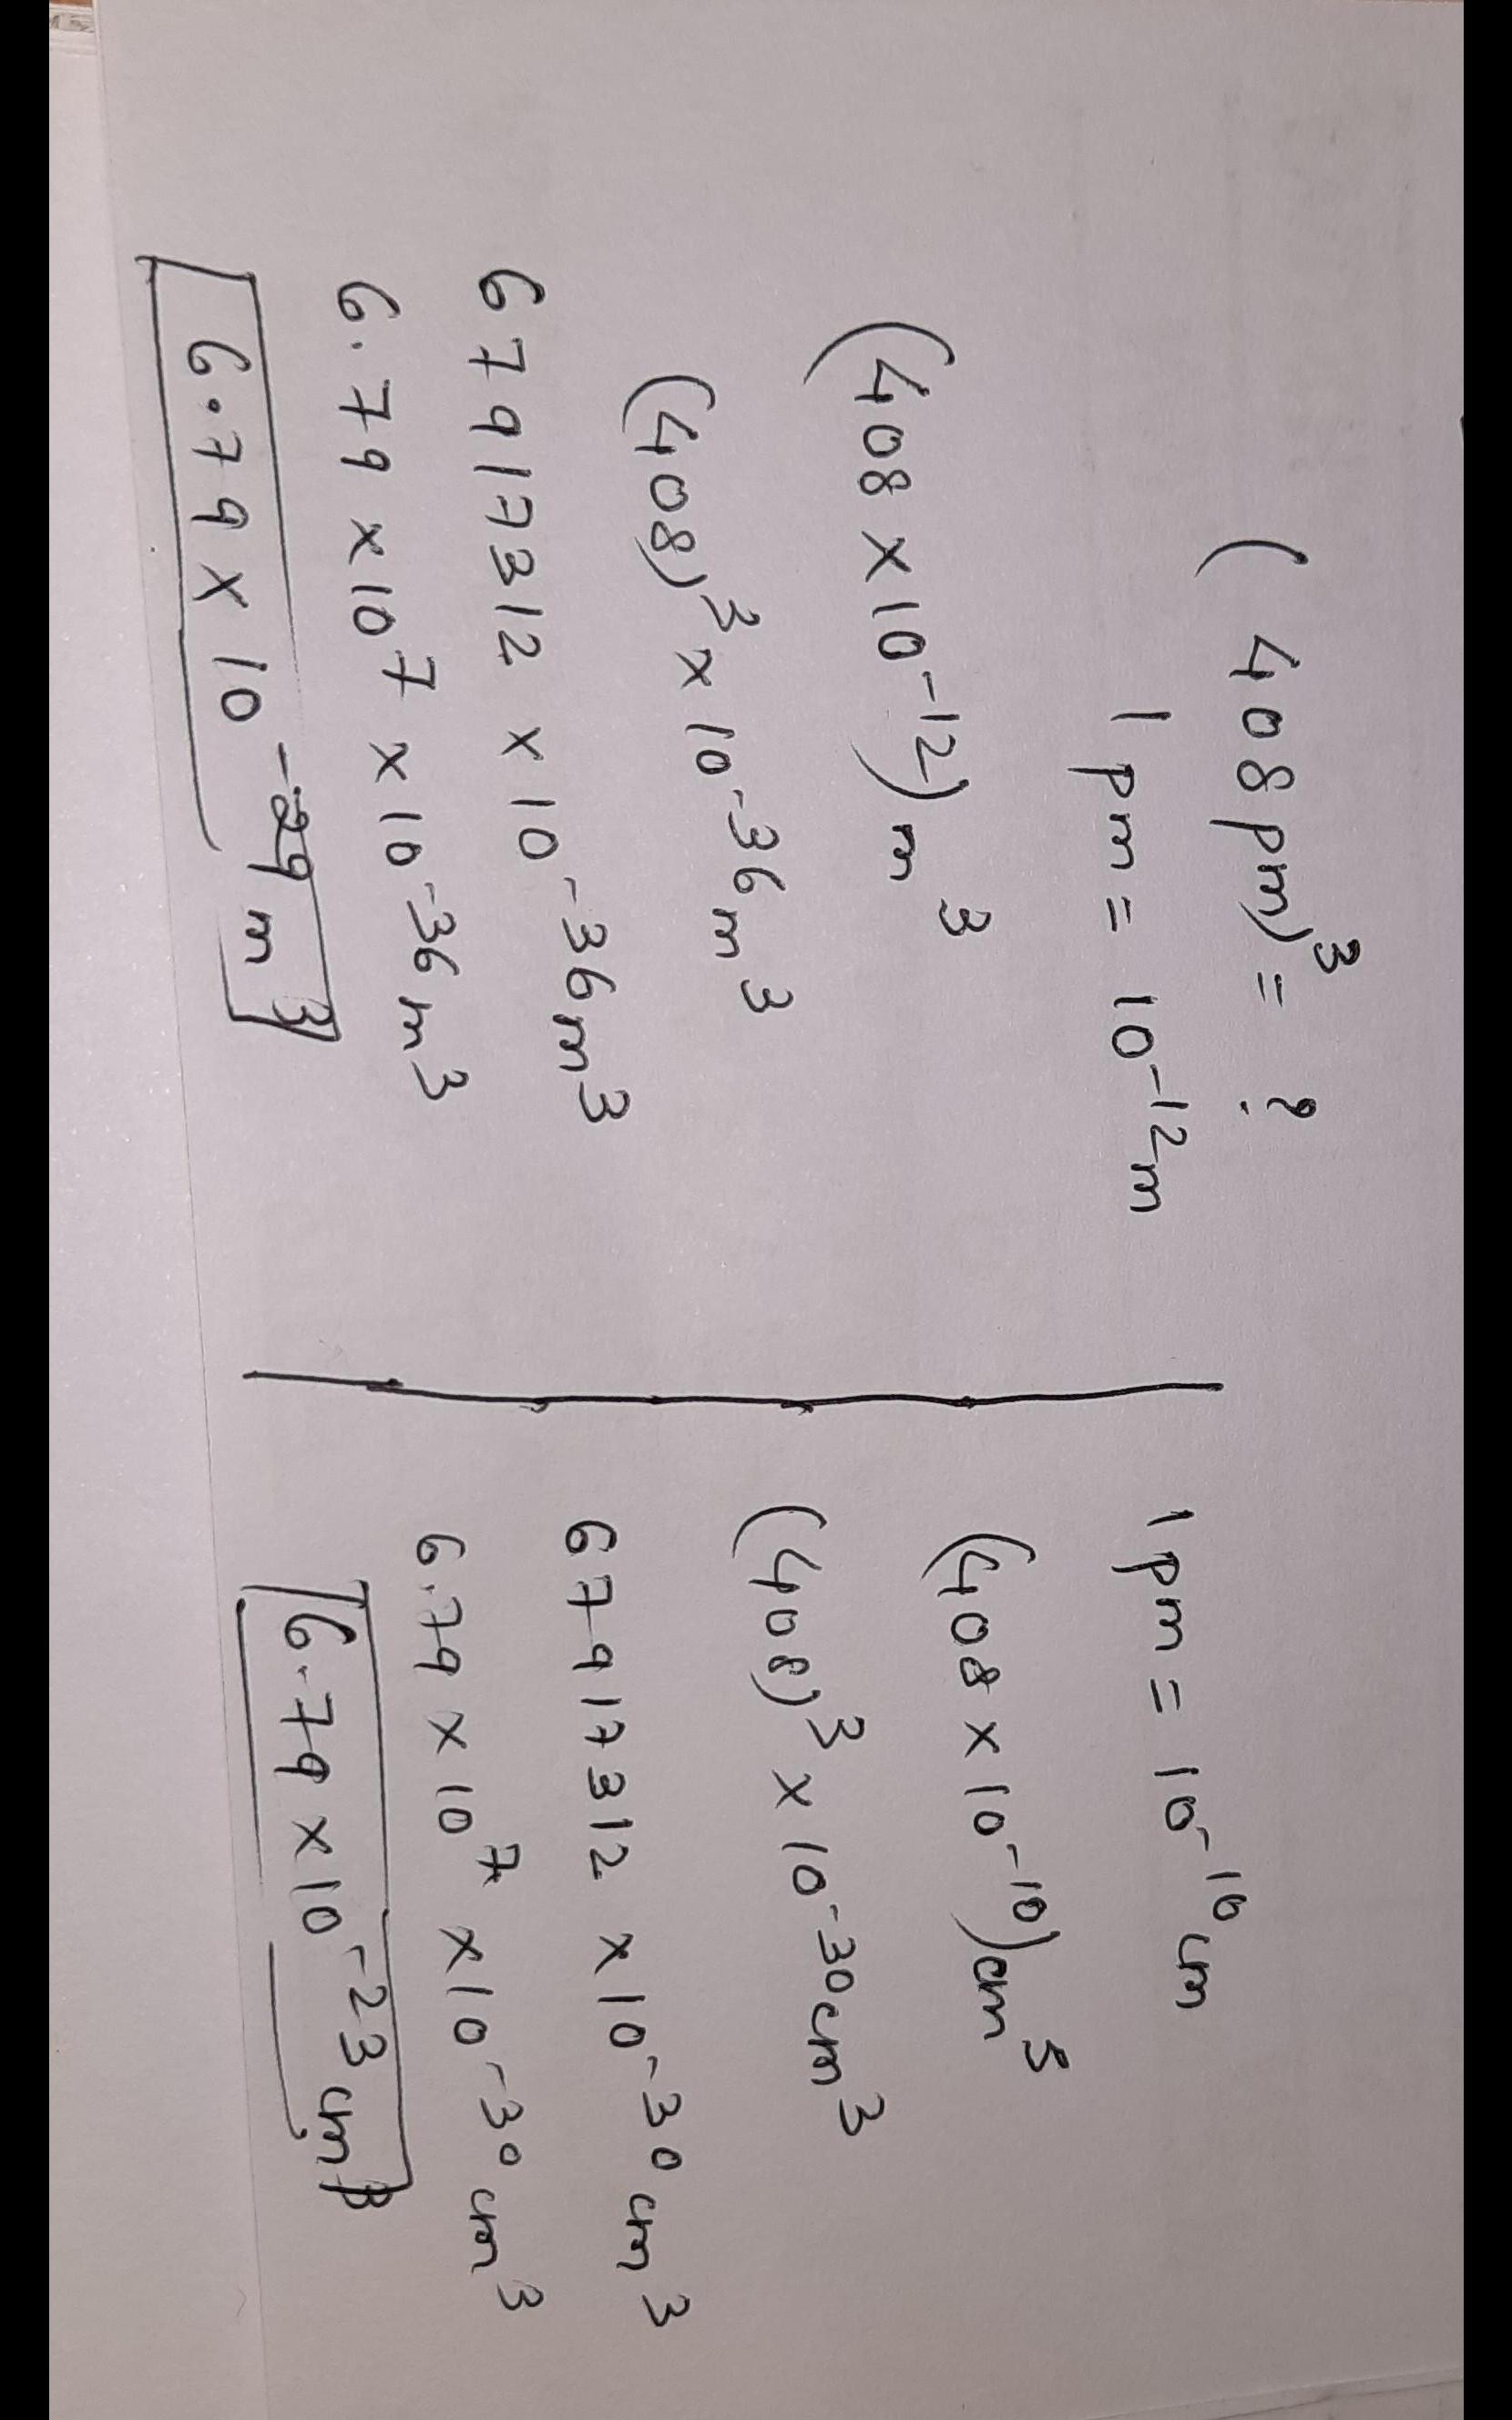 (408pm)³ = ?
1pm = 10⁻¹²m
(408 × 10⁻¹²)m³
(408)³ × 10⁻³⁶m³
67917312 × 10⁻³⁶m³
6.79 × 10⁷ × 10⁻³⁶m³
6.79 × 10⁻²⁹m³
1pm = 10⁻¹⁰cm
(408 × 10⁻¹⁰)cm³
(408)³ × 10⁻³⁰cm³
67917312 × 10⁻³⁰cm³
6.79 × 10⁷ × 10⁻³⁰cm³
6.79 × 10⁻²³cm³